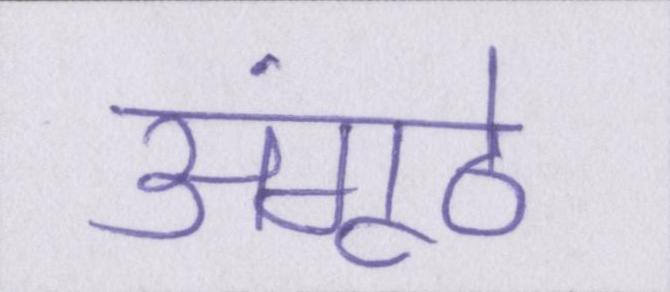 अंगूठे